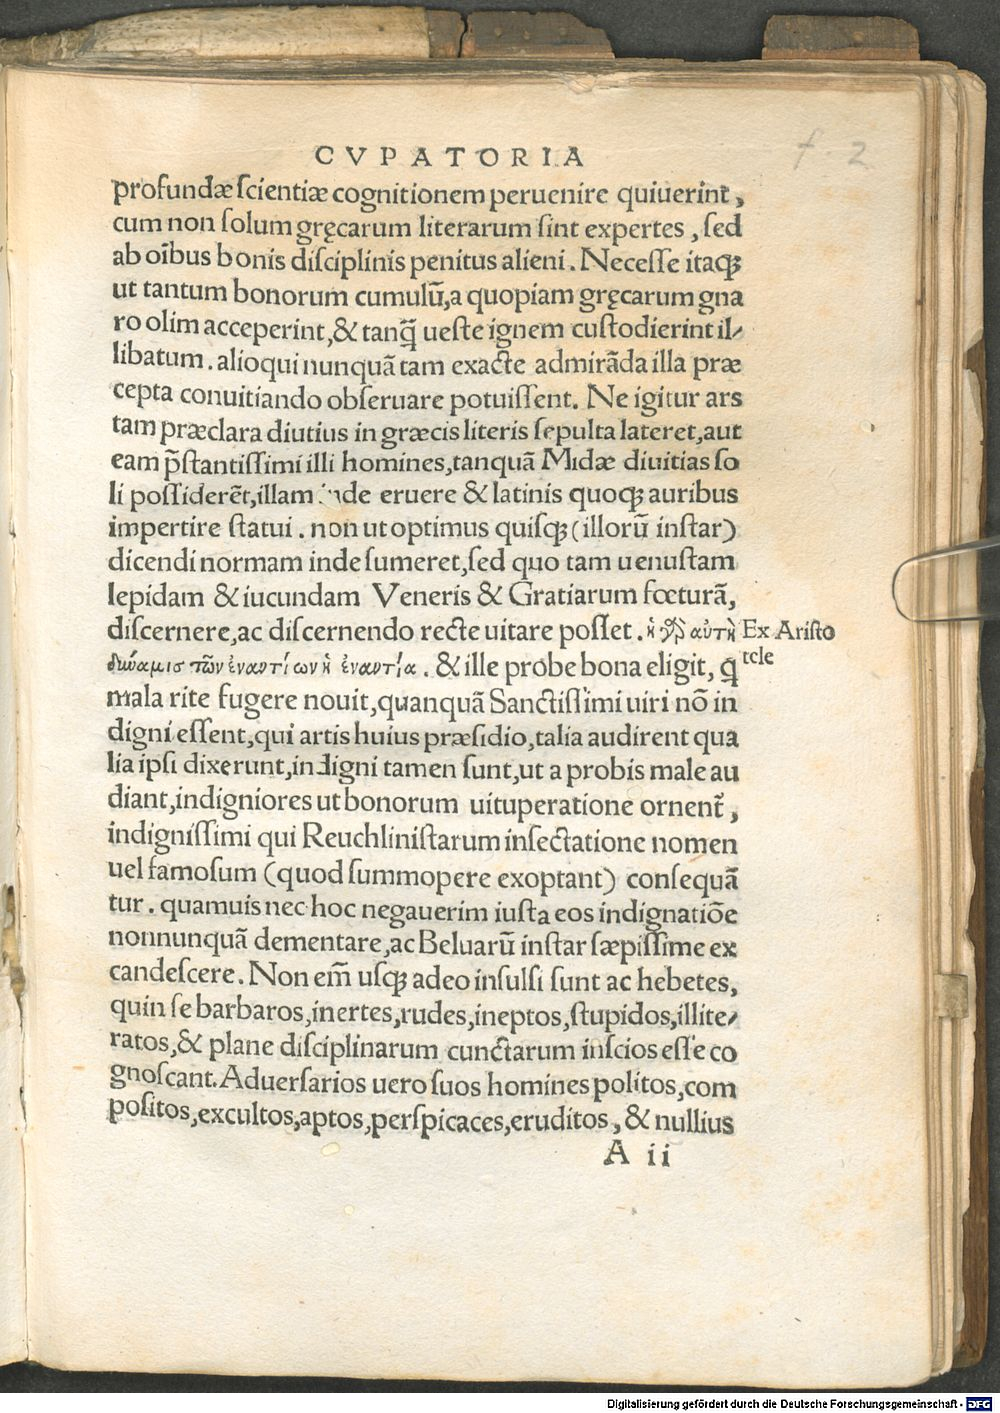 f. 2
CVPATORIA
profundæ ſcientiæ cognitionem peruenire quiuerint,
cum non ſolum gręcarum literarum ſint expertes, ſed
ab oı̄bus bonis diſciplinis penitus alieni. Neceſſe itaqꝫ
ut tantum bonorum cumulū, a quopiam gręcarum gna
ro olim acceperint, & tanꝗ̃ ueſte ignem cuſtodierint il⸗
libatum. alioqui nunquã tam exacte admirãda illa præ
cepta conuitiando obſeruare potuiſſent. Ne igitur ars
tam præclara diutius in græcis literis ſepulta lateret, aut
eam p̃ſtantiſſimi illi homines, tanquã Midæ diuitias ſo
li poſſiderẽt, illam inde eruere & latinis quoqꝫ auribus
impertire ſtatui. non ut optimus quiſqꝫ (illorũ inſtar)
dicendi normam inde ſumeret, ſed quo tam uenuſtam
lepidam & iucundam Veneris & Gratiarum fœturã,
diſcernere, ac diſcernendo recte uitare poſſet. ἡ γὰρ αὐτὴ Ex Ariſto
δύναμισ τῶν ἐναντίων ἡ ἐναντία. & ille probe bona eligit, ꝗ̃ tele
mala rite fugere nouit, quanquã Sanctiſſimi uiri nõ in
digni eſſent, qui artis huius præſidio, talia audirent qua
lia ipſi dixerunt, indigni tamen ſunt, ut a probis male au
diant, indigniores ut bonorum uituperatione ornent̃,
indigniſſimi qui Reuchliniſtarum inſectatione nomen
uel famoſum (quod ſummopere exoptant) conſequã
tur. quamuis nec hoc negauerim iuſta eos indignatiõe
nonnunquã dementare, ac Beluarũ inſtar ſæpiſſime ex
candeſcere. Non em̃ uſqꝫ adeo inſulſi ſunt ac hebetes,
quin ſe barbaros, inertes, rudes, ineptos, ſtupidos, illite⸗
ratos, & plane diſciplinarum cunctarum inſcios eſſe co
gnoſcant. Aduerſarios uero ſuos homines politos, com
poſitos, excultos, aptos, perſpicaces, eruditos, & nullius
A ii
Digitalisierung gefördert durch die Deutsche Forschungsgemeinschaft - DFG